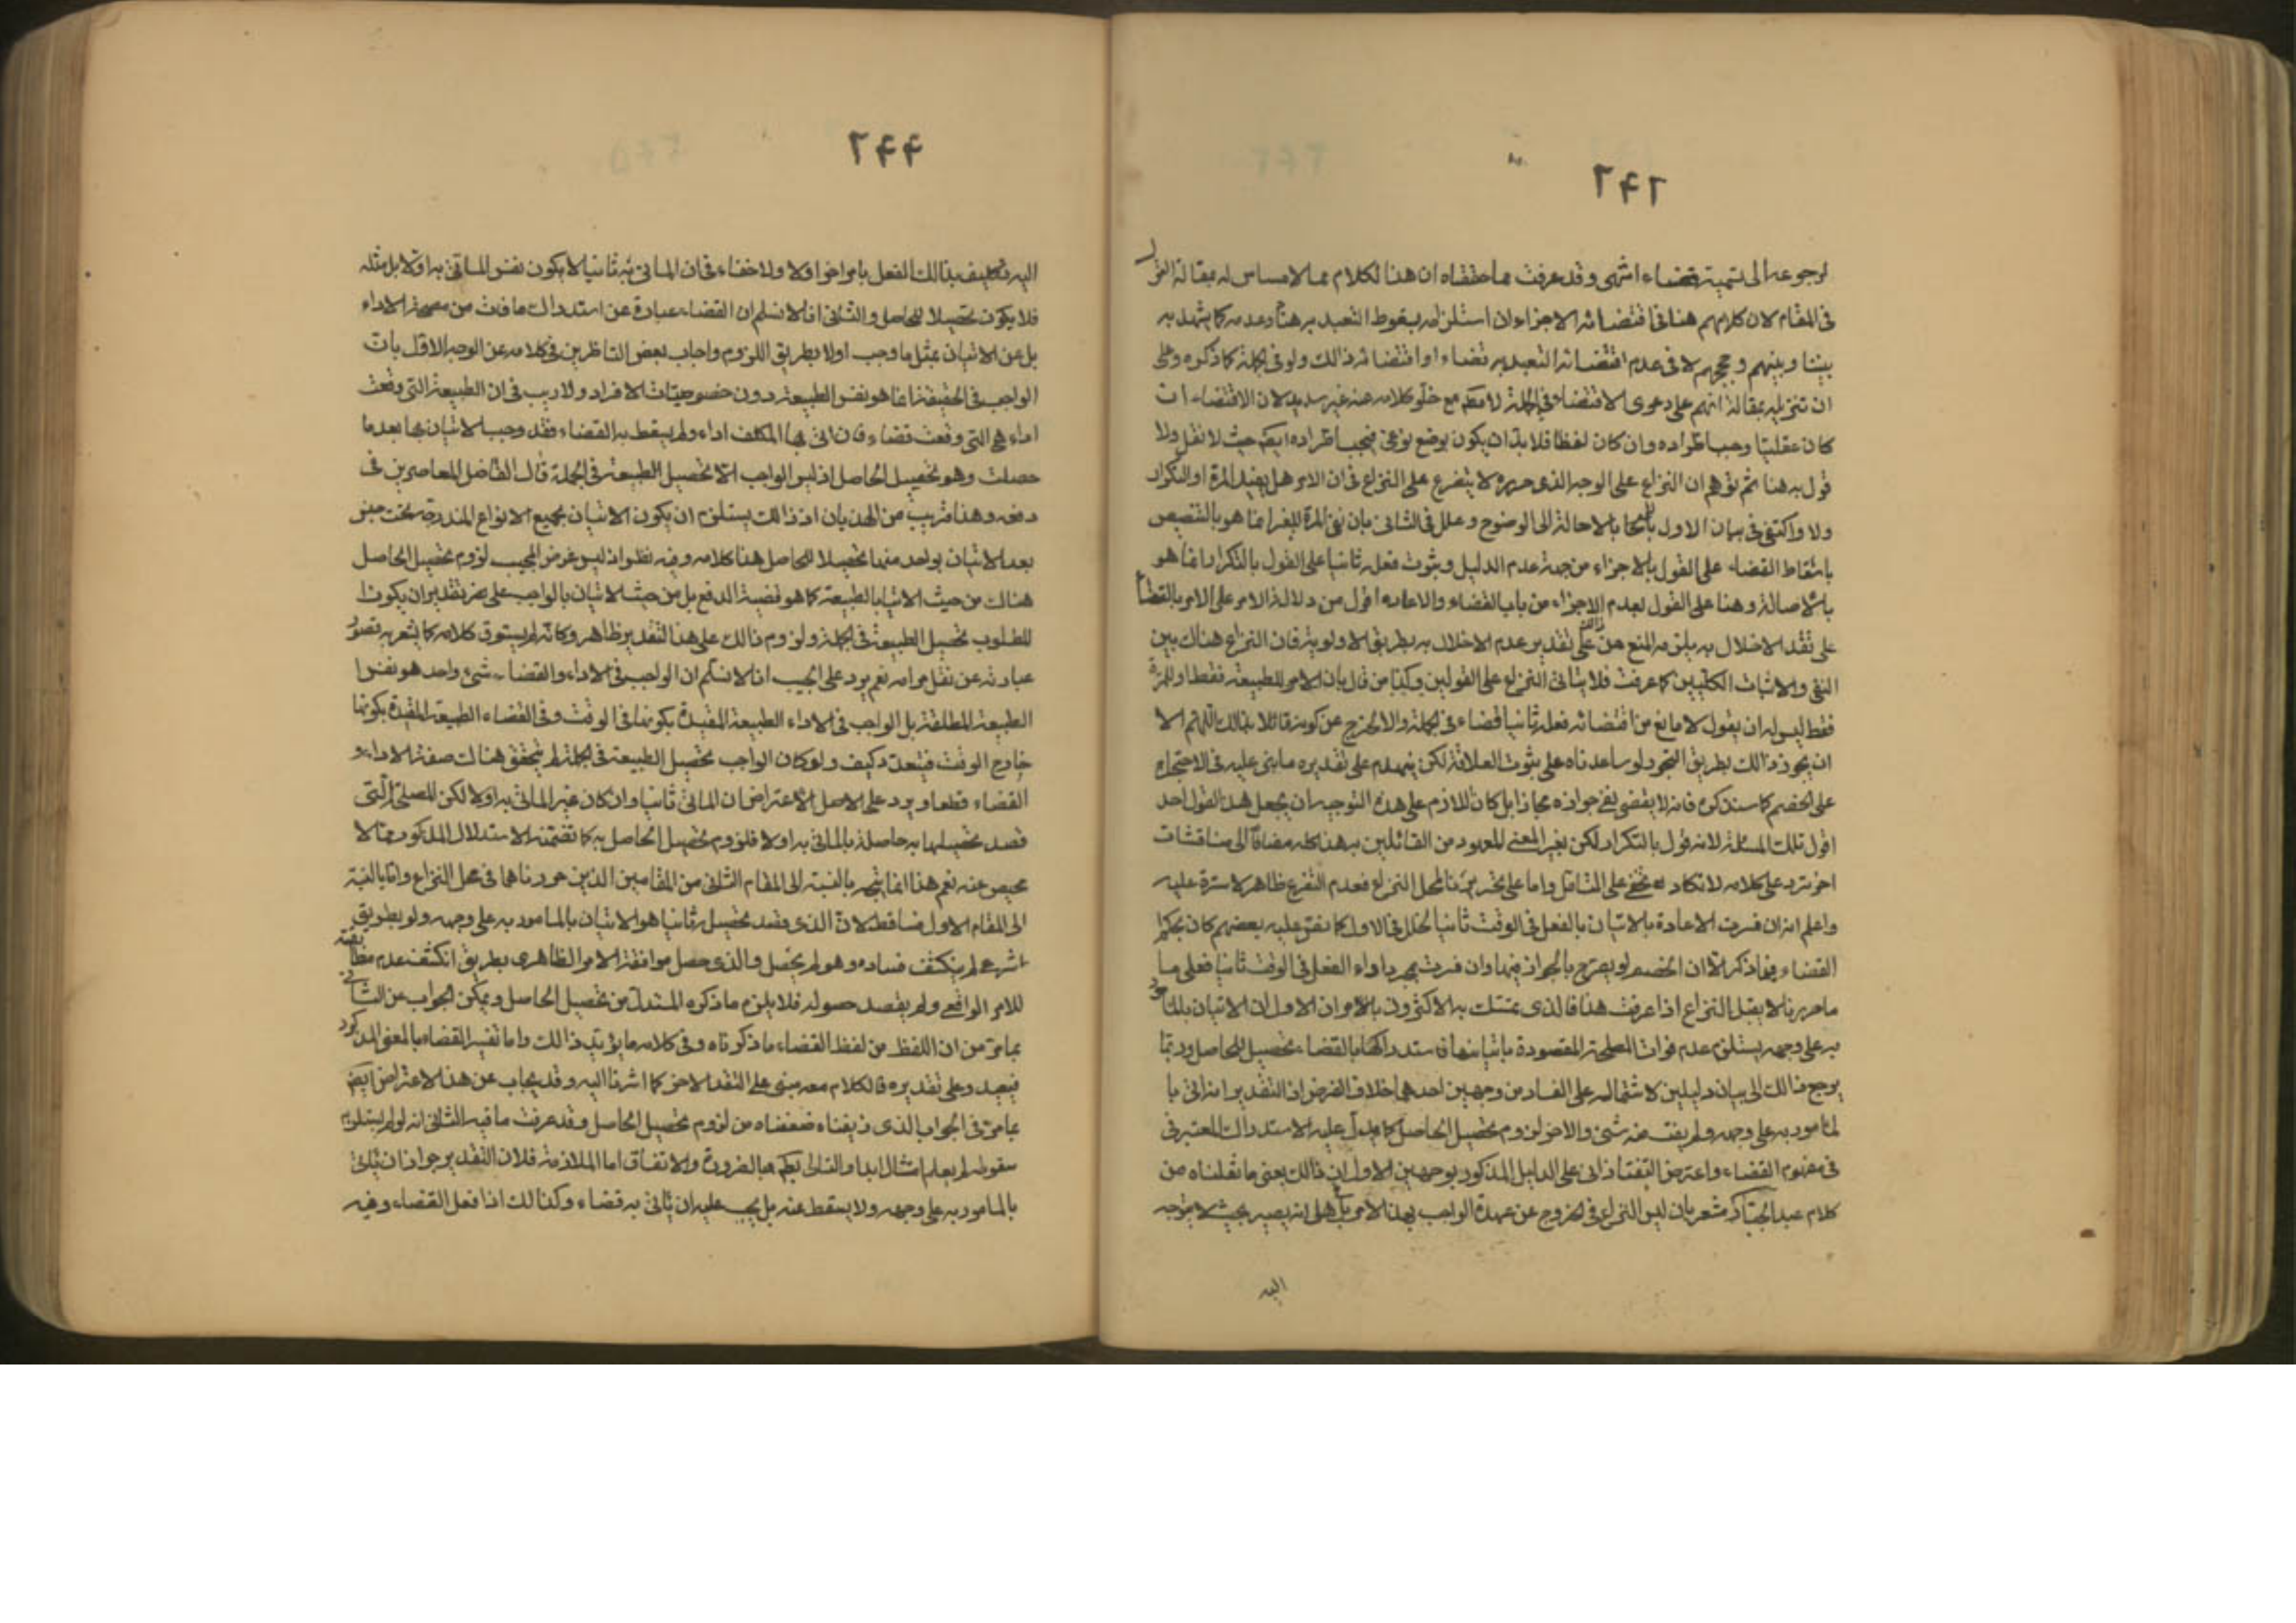 ٢٤٢
لرجوعه الى تسمية قضاء انتهى وقد عرفت مما حققناه ان هذا الكلام مما لا مساس له بمقالة القوم
فى المقام لان كلامهم هنا فى اقتضائه الاجزاء وان استلزامه سقوط التعبد به هنا وعدمه كما يشهد به
بيننا وبينهم وحججهم لا فى عدم اقتضائه التعبد به قضاء او اقتضائه ذالك ولو فى الجملة كما ذكره وعلى
ان تنزيله مقالة انهم على دعوى الاقتضاء فى الجملة مع خلو كلامه عنه غير سديد لان الاقتضاء ان
كان عقليا وجب اطراده وان كان لفظا فلا بد ان يكون بوضع نوعى فيجب اطراده ايضا حيث لا نقل ولا
قول به هنا ثم توهم ان النزاع على الوجه الذى حرره لا يتفرع على النزاع فى ان الامر هل يفيد المرة او التكرار
ولا واكتفى فى بيان الاول بالاحالة الى الوضوح وعلل فى الثانى بان نفى المرة للغير انما هو بالتنصيص
باسقاط القضاء على القول بالاجزاء من جهة عدم الدليل وثبوت فعله ثانيا على القول بالتكرار انما هو
بالاصالة وهنا على القول بعدم الاجزاء من باب القضاء والاعاده اقول من دلالة الامر على الامر بالقضاء
على تقدير الاخلال به يلزمه المنع على تقدير عدم الاخلال به بطريق الاولوية فان النزاع هناك بين
النفى والاثبات الكليين كما عرفت فلا يتاتى النزاع على القولين وكيف من قال بان الامر للطبيعة فقط او للمرة
فقط ليس له ان يقول لا مانع من اقتضائه فعله ثانيا قضاء فى الجملة والا لخرج عن كونه قائلا بذالك اللهم الا
ان يجوز ذالك بطريق التجوز لو ساعدناه على ثبوت العلاقة لكن ينهدم على تقديره ما بنى عليه فى الاحتجاج
على الخصم كما سنذكره فانه لا يقضى بنفى جوازه مجازا بل كان اللازم على هذا التوجيه ان يجعل هذا القول احد
اقول تلك المسئلة لانه قول بالتكرار لكن بغير المعنى المعهود من القائلين به هذا كله مضافا الى مناقشات
اخر ترد على كلامه لا تكاد تخفى على المتامل واما على تحريرنا لمحل النزاع فعدم التفرع ظاهر لا سترة عليه
واعلم انه ان فسرت الاعادة بالاتيان بالفعل فى الوقت ثانيا لخلل فى الاول كما نص عليه بعضهم كان بحكم
القضاء فيما ذكر الا ان الخصم لم يصرح بالجواز فيها وان فسرت بمجرد اداء الفعل فى الوقت ثانيا فعلى ما
ما حررنا لا يقبل النزاع اذا عرفت هذا فالذى تمسك به الاكثرون بالامر ان الاول ان الاتيان بالمامور
به على وجهه يستلزم عدم فوات المصلحة المقصودة باتيانها فاستدراكها بالقضاء تحصيل للحاصل وربما
يرجع ذالك الى بيان دليلين لاشتماله على الفساد من وجهين احدهما خلاف الفرض اذ التقدير انه اتى با
لمامور به على وجهه ولم يفت منه شئ والاخر لزوم تحصيل الحاصل كما يدل عليه الاستدراك المعتبر فى
فى مفهوم القضاء واعترض التفتازانى على الدليل المذكور بوجهين الاول ان ذالك يعنى ما نقلناه من
كلام عبد الجبار مشعر بان ليس النزاع فى الخروج عن عهدة الواجب بهذا الامر بل هل انه يصير بحيث لا يتوجه
اليه
٢٤٤
اليه تكليف بذالك الفعل بامر اخر اولا ولا خفاء فى ان الماتى به ثانيا لا يكون نفس الماتى به اولا بل مثله
فلا يكون تحصيلا للحاصل والثانى انا لا نسلم ان القضاء عبارة عن استدراك ما فات من مصلحة الاداء
بل عن الاتيان بمثل ما وجب اولا بطريق اللزوم واجاب بعض الناظرين فى كلامه عن الوجه الاول بان
الواجب فى الحقيقة انما هو نفس الطبيعة دون خصوصيات الافراد ولا ريب فى ان الطبيعة التى وقعت
اداء هى التى وقعت قضاء فان اتى بها المكلف اداء ولم يسقط به القضاء فقد وجب الاتيان بها بعد ما
حصلت وهو تحصيل الحاصل اذ ليس الواجب الا تحصيل الطبيعة فى الجملة قال الفاضل المعاصرين فى
دفعه وهذا قريب من الهذيان اذ ذالك يستلزم ان يكون الاتيان بجميع الانواع المندرجة تحت جنس
بعد الاتيان بواحد منها تحصيلا للحاصل هذا كلامه وفيه نظر اذ ليس غرض المجيب لزوم تحصيل الحاصل
هناك من حيث الاتيان بالطبيعة كما هو قضية الدفع بل من حيث الاتيان بالواجب على تقدير ان يكون ا
لمطلوب تحصيل الطبيعة فى الجملة ولزوم ذالك على هذا التقدير ظاهر وكانه لم يستوف كلامه كما يشعر به قصور
عبارته عن نقل مرامه نعم يرد على المجيب انا لا نسلم ان الواجب فى الاداء والقضاء شئ واحد هو نفس ا
لطبيعة المطلقة بل الواجب فى الاداء الطبيعة المقيدة بكونها فى الوقت وفى القضاء الطبيعة المقيدة بكونها
خارج الوقت فيتعدد كيف ولو كان الواجب تحصيل الطبيعة فى الجملة لم يتحقق هناك صفة الاداء و
القضاء قطعا ويرد على الاصل الاعتراض ان الماتى ثانيا وان كان غير الماتى به اولا لكن المصلحة التى
قصد تحصيلها به حاصلة بالماتى به اولا فلزوم تحصيل الحاصل به كما تضمنه الاستدلال المذكور مما لا
محيص عنه نعم هذا انما يتجه بالنسبة الى المقام الثانى من المقامين الذين حررناهما فى محل النزاع واما بالنسبة
الى المقام الاول فساقط لان الذى قصد تحصيله ثانيا هو الاتيان بالمامور به على وجهه ولو بطريق
شرعى لم ينكشف فساده وهو لم يحصل والذى حصل موافقة الامر الظاهرى بطريق انكشف عدم مطابقته
للامر الواقعى ولم يقصد حصوله فلا يلزم ما ذكره المستدل من تحصيل الحاصل ويمكن الجواب عن الثانى
بما مر من ان اللفظ من لفظ القضاء ما ذكرناه وفى كلامه ما يؤيد ذالك واما تفسير القضاء بالمعنى المذكور
فبعيد وعلى تقديره فالكلام معه مبنى على التقدير الاخر كما اشرنا اليه وقد يجاب عن هذا الاعتراض ايضا
بما مر فى الجواب الذى زيفناه ضعفناه من لزوم تحصيل الحاصل وقد عرفت ما فيه الثانى انه لو لم يستلزم
سقوطه لم يعلم امتثال ابدا والتالى بط بالضرورة والاتفاق اما الملازمة فلان التقدير جواز ان ياتى
بالمامور به على وجهه ولا يسقط عنه بل يجب عليه ان ياتى به قضاء وكذالك اذا فعل القضاء وفيه